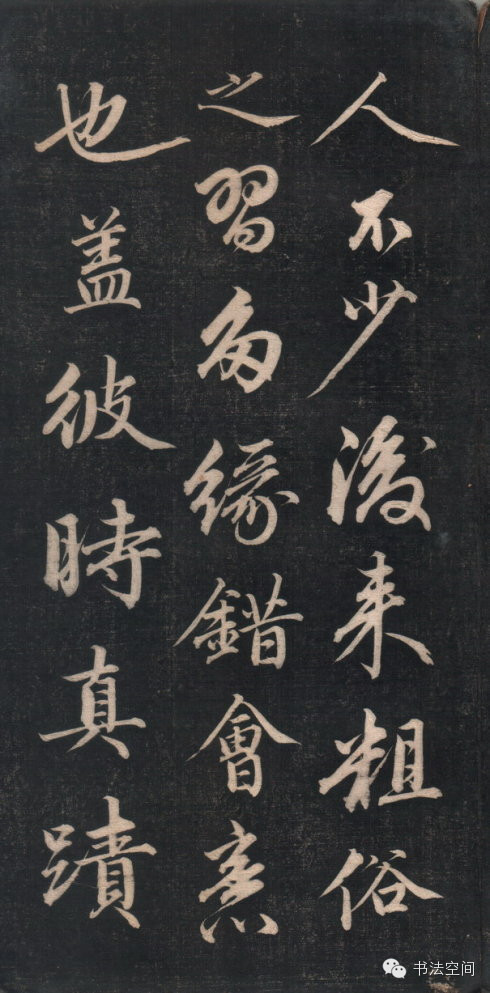 人不少後来粗俗
之習多緣錯會意
也盖彼時真蹟
书法空间